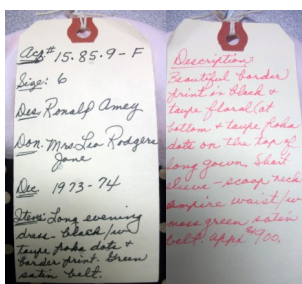 Acq# 15.85.9-F
Size: 6
Des. Ronald Amey
Don. Mrs. Leo Rodgers
Jane
Dec. 1973-74
Item: Long evening
dress - black/w
taupe poka dots &
border print. Green
satin belt.
Description:
Beautiful border
print in black &
taupe floral (at
bottom & taupe poka
dots on the top of
long gown. Short
sleeve - scoop neck
empire waist/w
moss green satin
belt. appx $900.